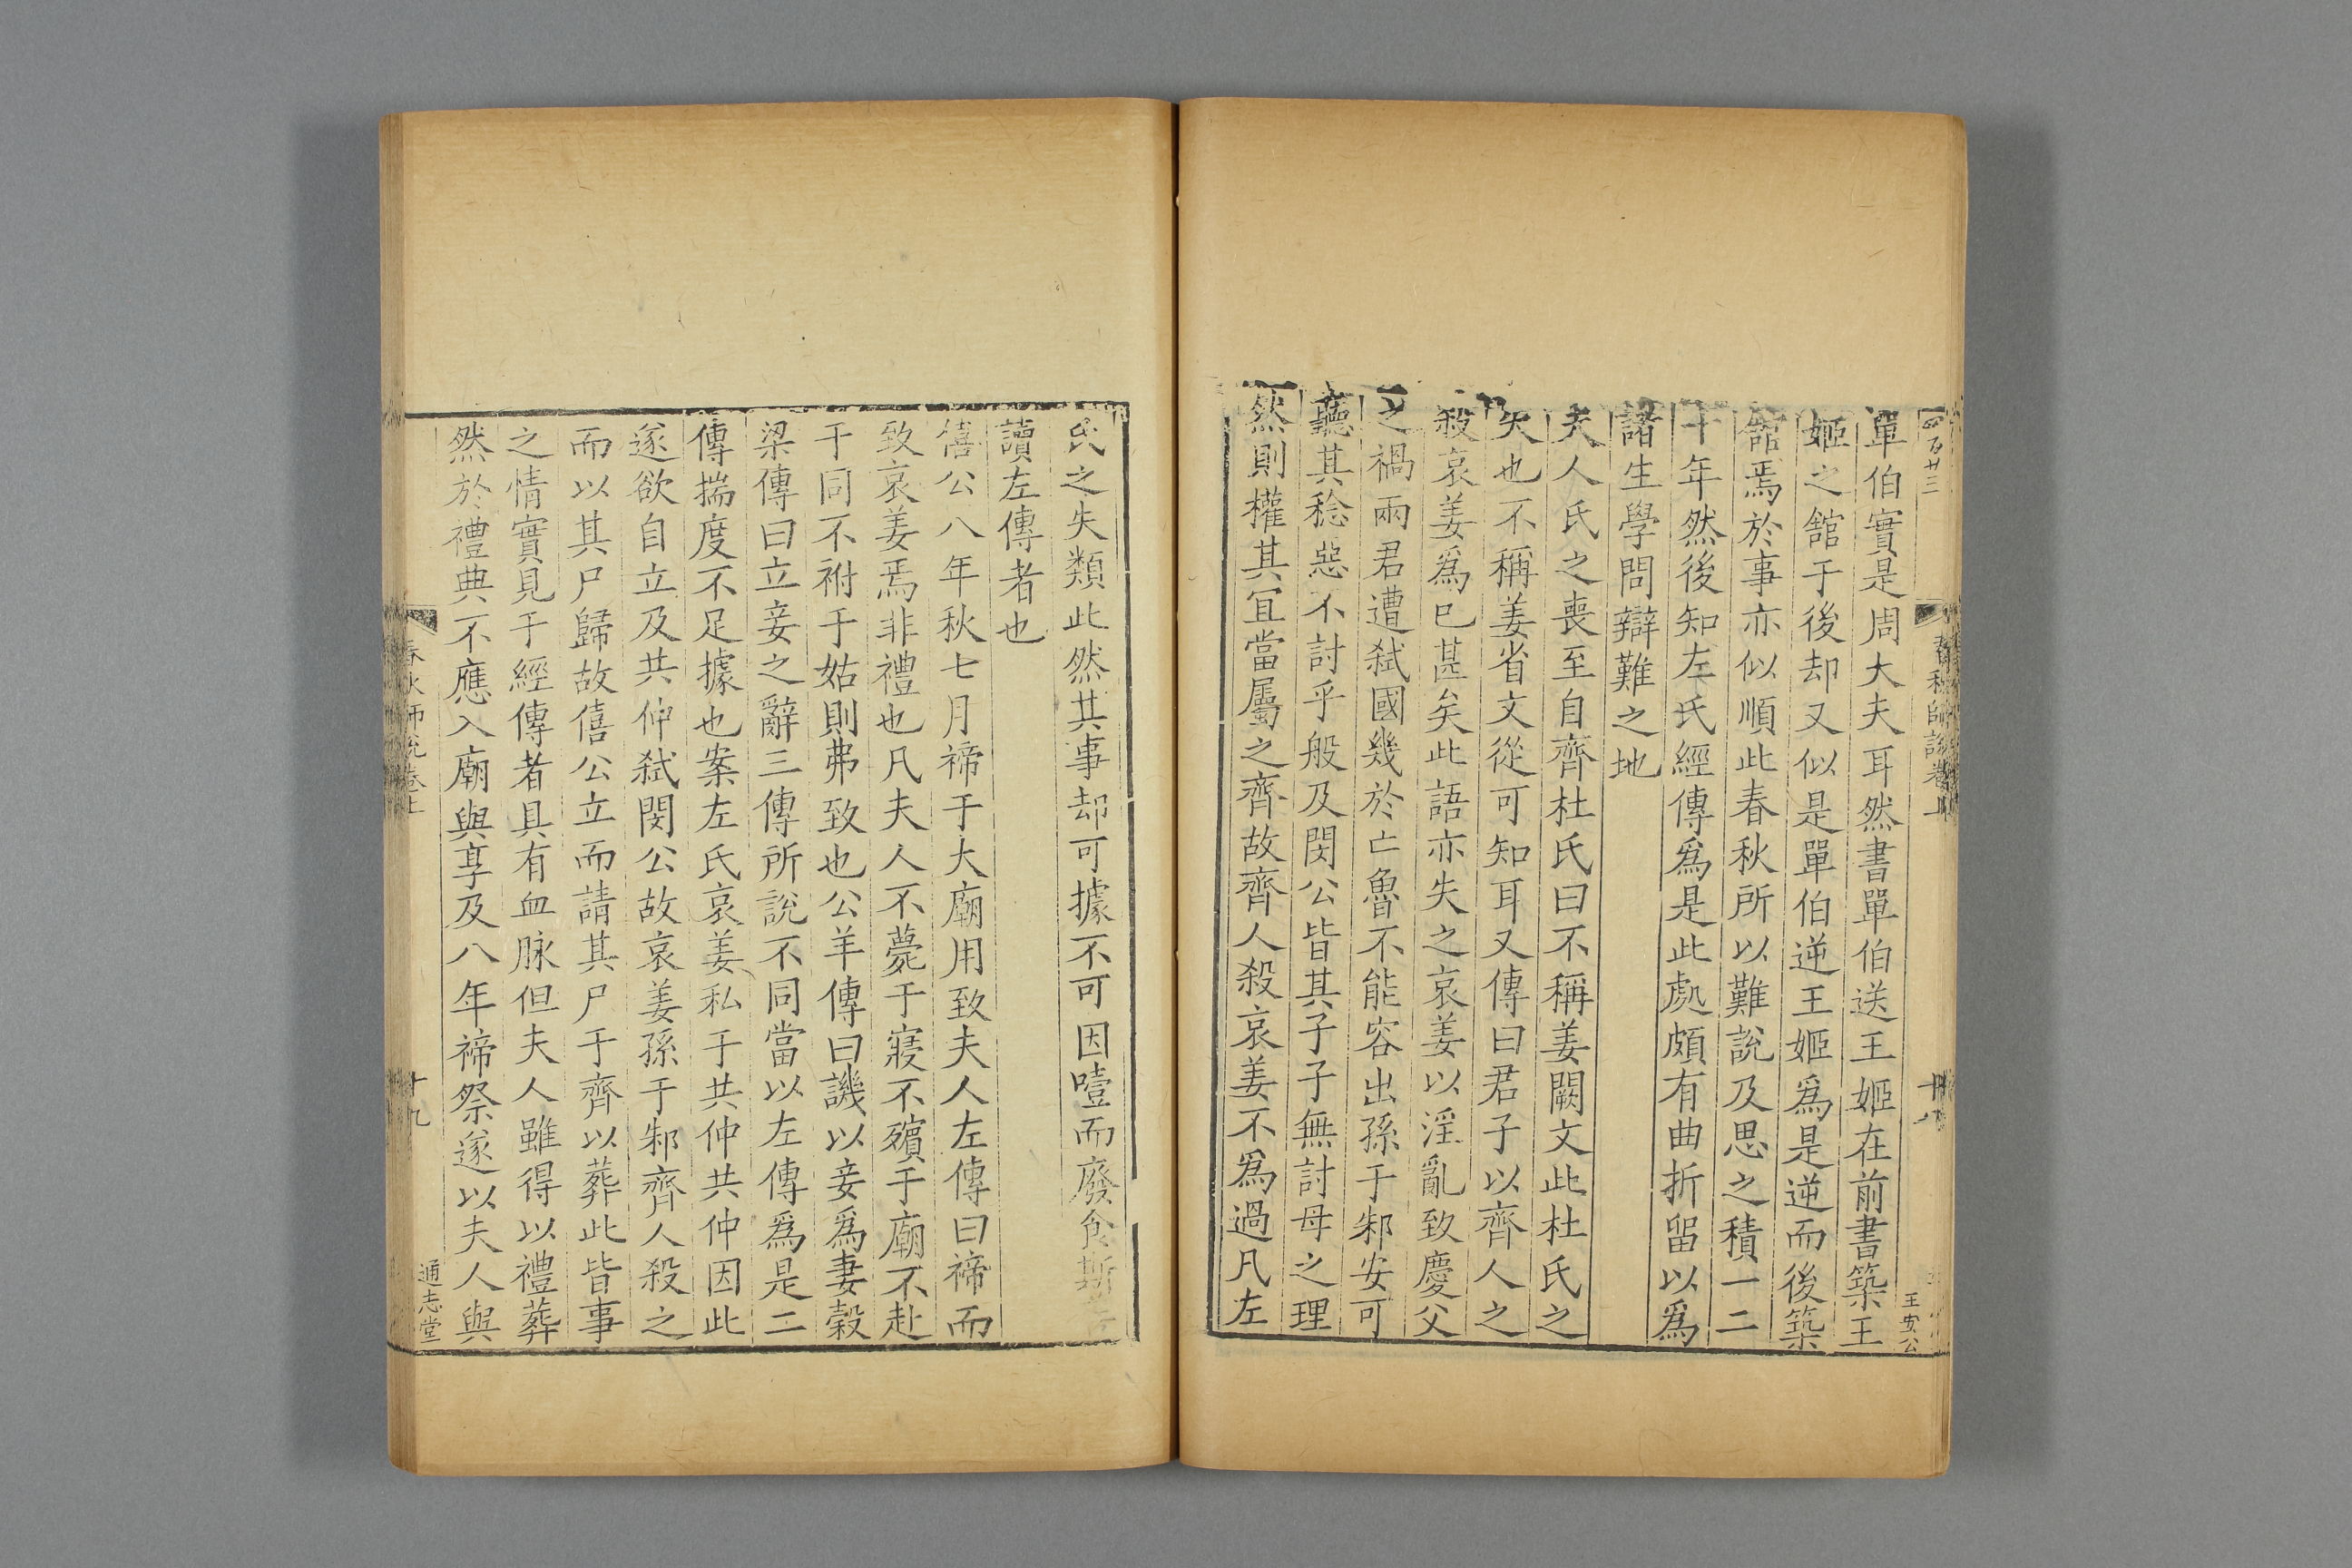 四百廿三
春秋師說卷上
十八
王安公
單伯實是周大夫耳然書單伯送王姬在前書築王
姬之舘于後却又似是單伯逆王姬爲是逆而後築
舘焉於事亦似順此春秋所以難說及思之積一二
十年然後知左氏經傳爲是此處頗有曲折留以爲
諸生學問辯難之地
夫人氏之喪至自齊杜氏曰不稱姜闕文此杜氏之
失也不稱姜省文從可知耳又傳曰君子以齊人之
殺哀姜爲已甚矣此語亦失之哀姜以淫亂致慶父
之禍兩君遭弑國幾於亡魯不能容出孫于邾安可
聽其稔惡不討乎般及閔公皆其子子無討母之理
然則權其冝當屬之齊故齊人殺哀姜不爲過凡左
氏之失類此然其事却可據不可因噎而廢食斯
讀左傳者也
僖公八年秋七月禘于大廟用致夫人左傳曰禘而
致哀姜焉非禮也凡夫人不薨于寢不殯于廟不赴
于同不祔于姑則弗致也公羊傳曰譏以妾爲妻穀
梁傳曰立妾之辭三傳所說不同當以左傳爲是二
傳揣度不足據也案左氏哀姜私于共仲共仲因此
遂欲自立及共仲弑閔公故哀姜孫于邾齊人殺之
而以其尸歸故僖公立而請其尸于齊以葬此皆事
之情實見于經傳者具有血脉但夫人雖得以禮葬
然於禮典不應入廟與享及八年禘祭遂以夫人與
春秋師說卷上
十九
通志堂